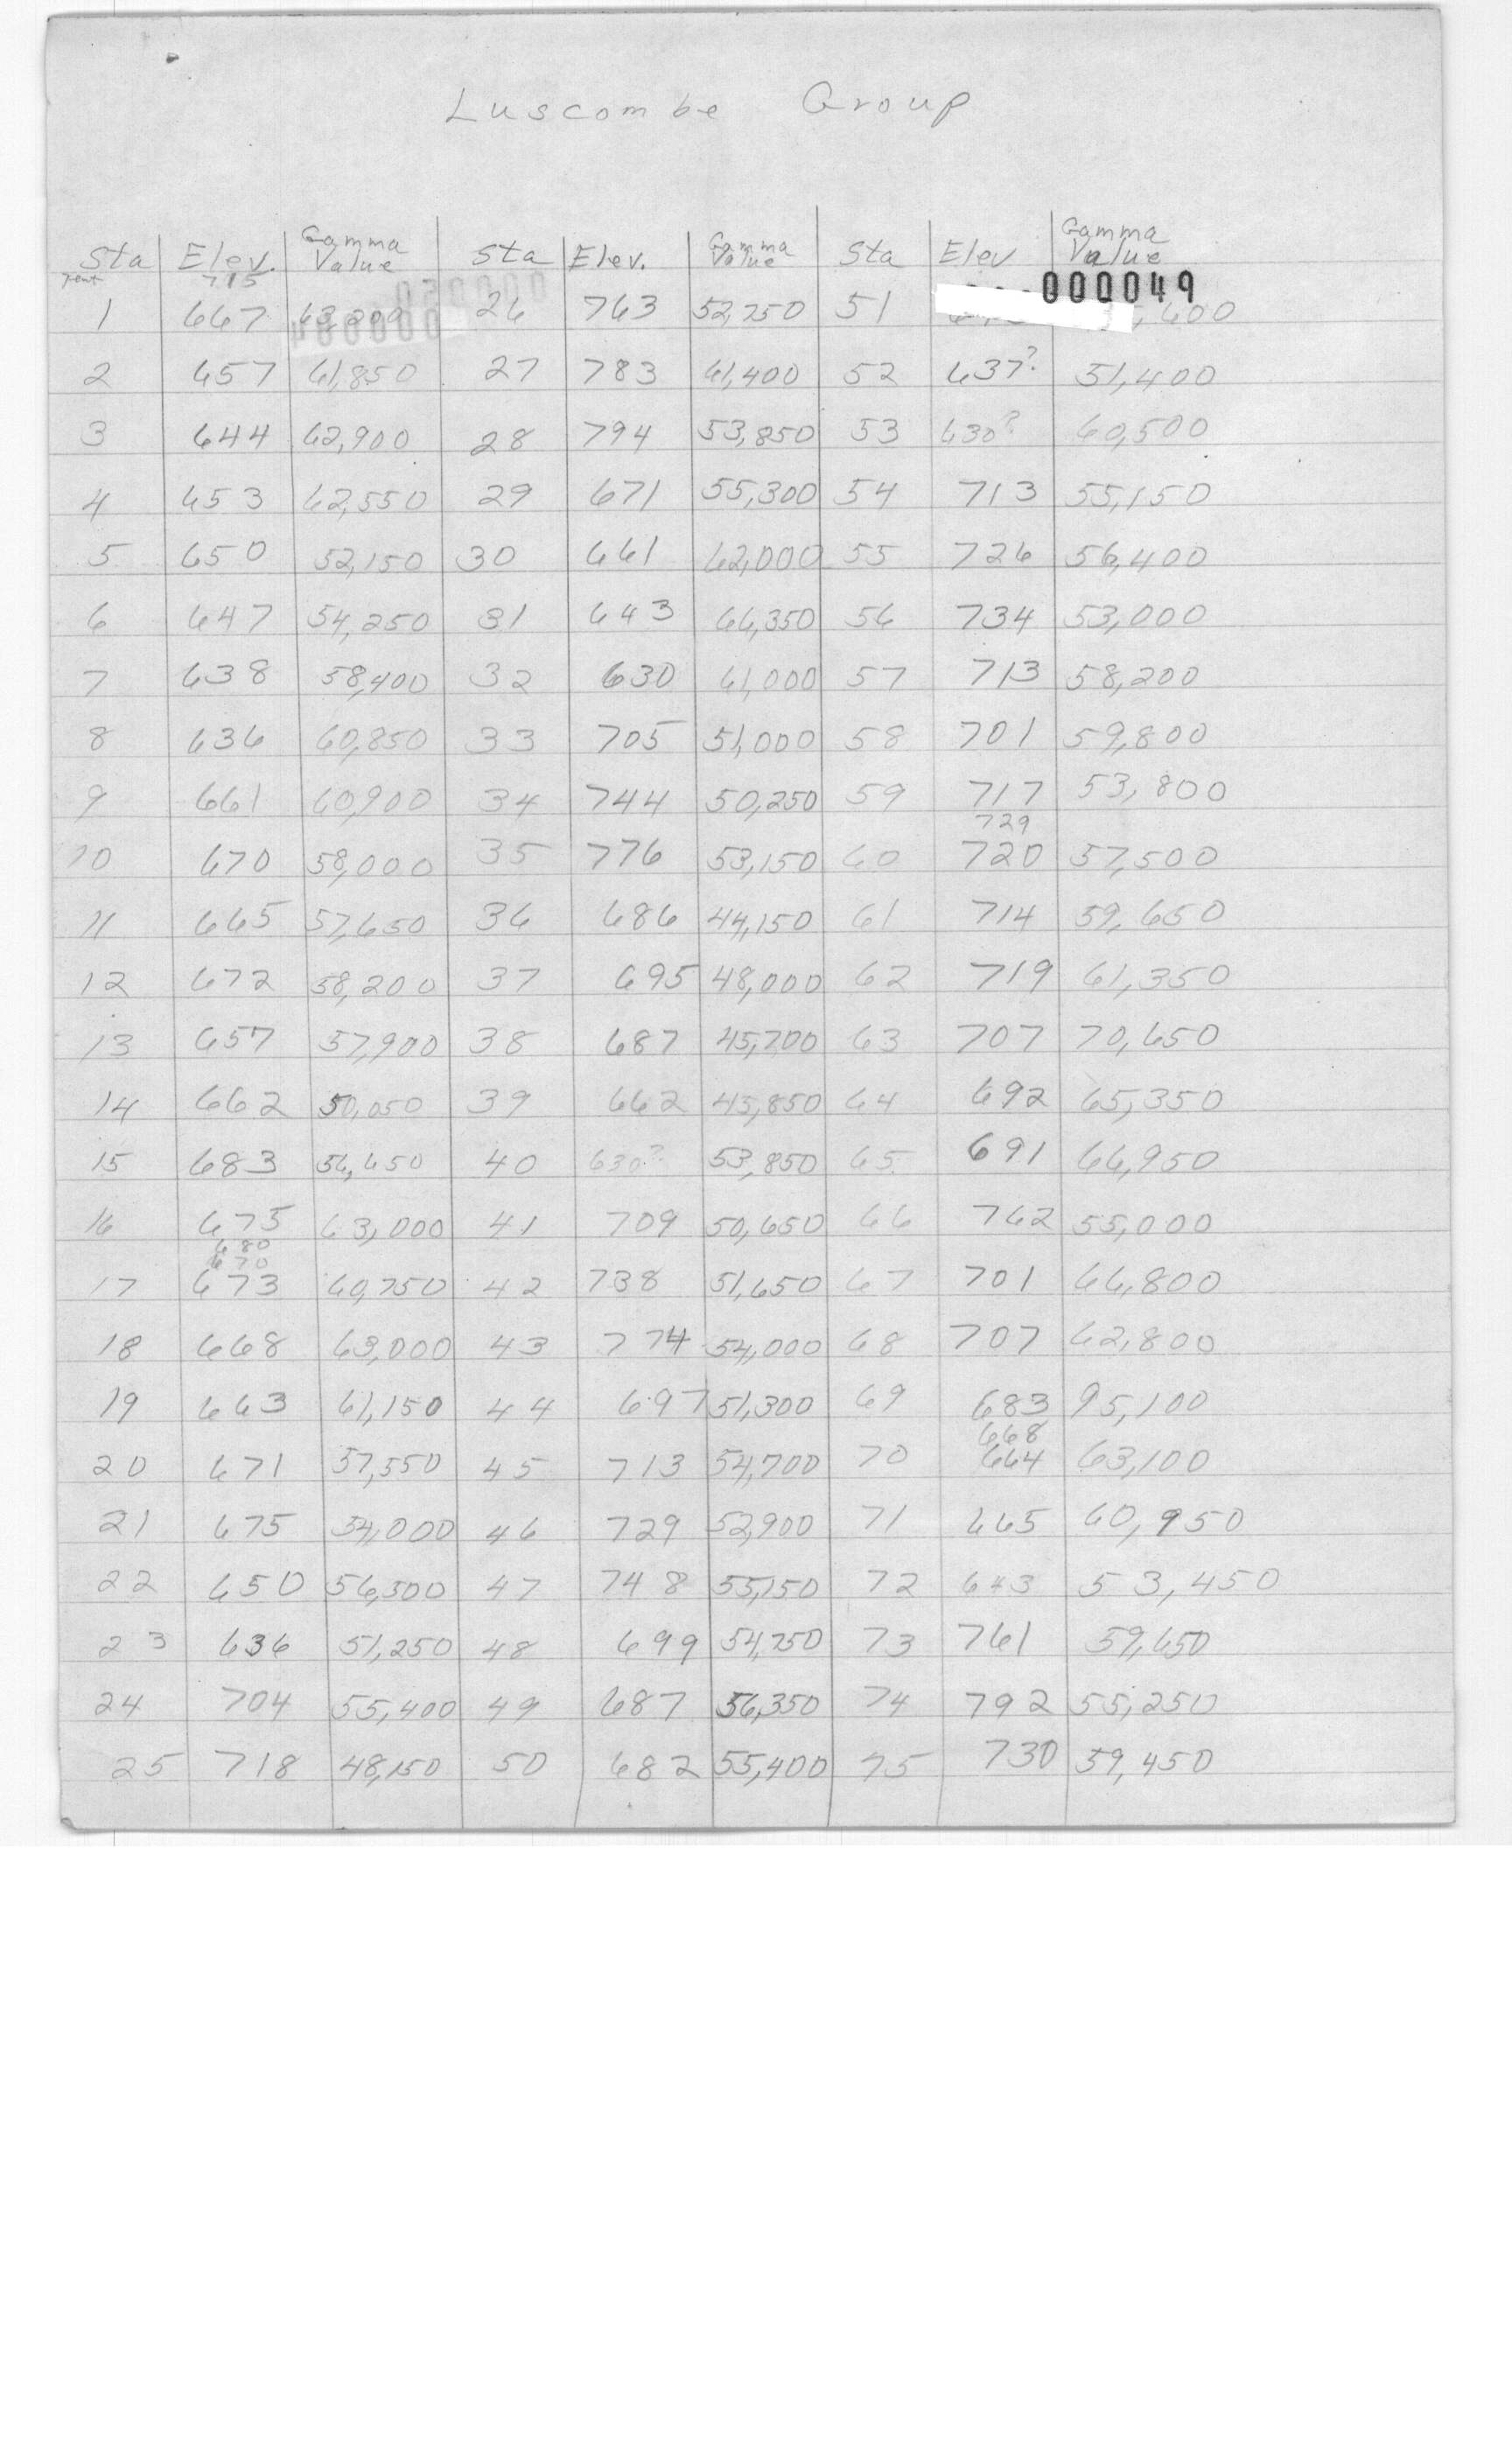 Luscombe Group
Sta Elev. Gamma Value Sta Elev. Gamma Value Sta Elev Gamma Value
Tent 715
000049
1 667 63,200 26 763 52,750 51 ,600
2 657 61,850 27 783 61,400 52 637? 51,400
3 644 62,900 28 794 53,850 53 630? 60,500
4 653 62,550 29 671 55,300 54 713 55,150
5 650 52,150 30 661 62,000 55 726 56,400
6 647 54,250 31 643 66,350 56 734 53,000
7 638 58,400 32 630 61,000 57 713 58,200
8 636 60,850 33 705 51,000 58 701 59,800
9 661 60,900 34 744 50,250 59 717 53,800
729
10 670 58,000 35 776 53,150 60 720 57,500
11 665 57,650 36 686 44,150 61 714 59,650
12 672 58,200 37 695 48,000 62 719 61,350
13 657 57,900 38 687 45,700 63 707 70,650
14 662 50,050 39 662 45,850 64 692 65,350
15 683 56,650 40 630? 53,850 65 691 66,950
16 675 63,000 41 709 50,650 66 762 55,000
680
670
17 673 60,750 42 738 51,650 67 701 66,800
18 668 63,000 43 774 54,000 68 707 62,800
19 663 61,150 44 697 51,300 69 683 95,100
668
20 671 57,550 45 713 54,700 70 664 63,100
21 675 54,000 46 729 52,900 71 665 60,950
22 650 56,500 47 748 55,150 72 643 53,450
23 636 51,250 48 699 54,750 73 761 59,650
24 704 55,400 49 687 56,350 74 792 55,250
25 718 48,150 50 682 55,400 75 730 59,450